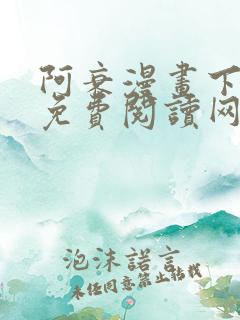 阿衰漫畫下
免費閱讀网
泡沫諾言
未经同意禁止转载